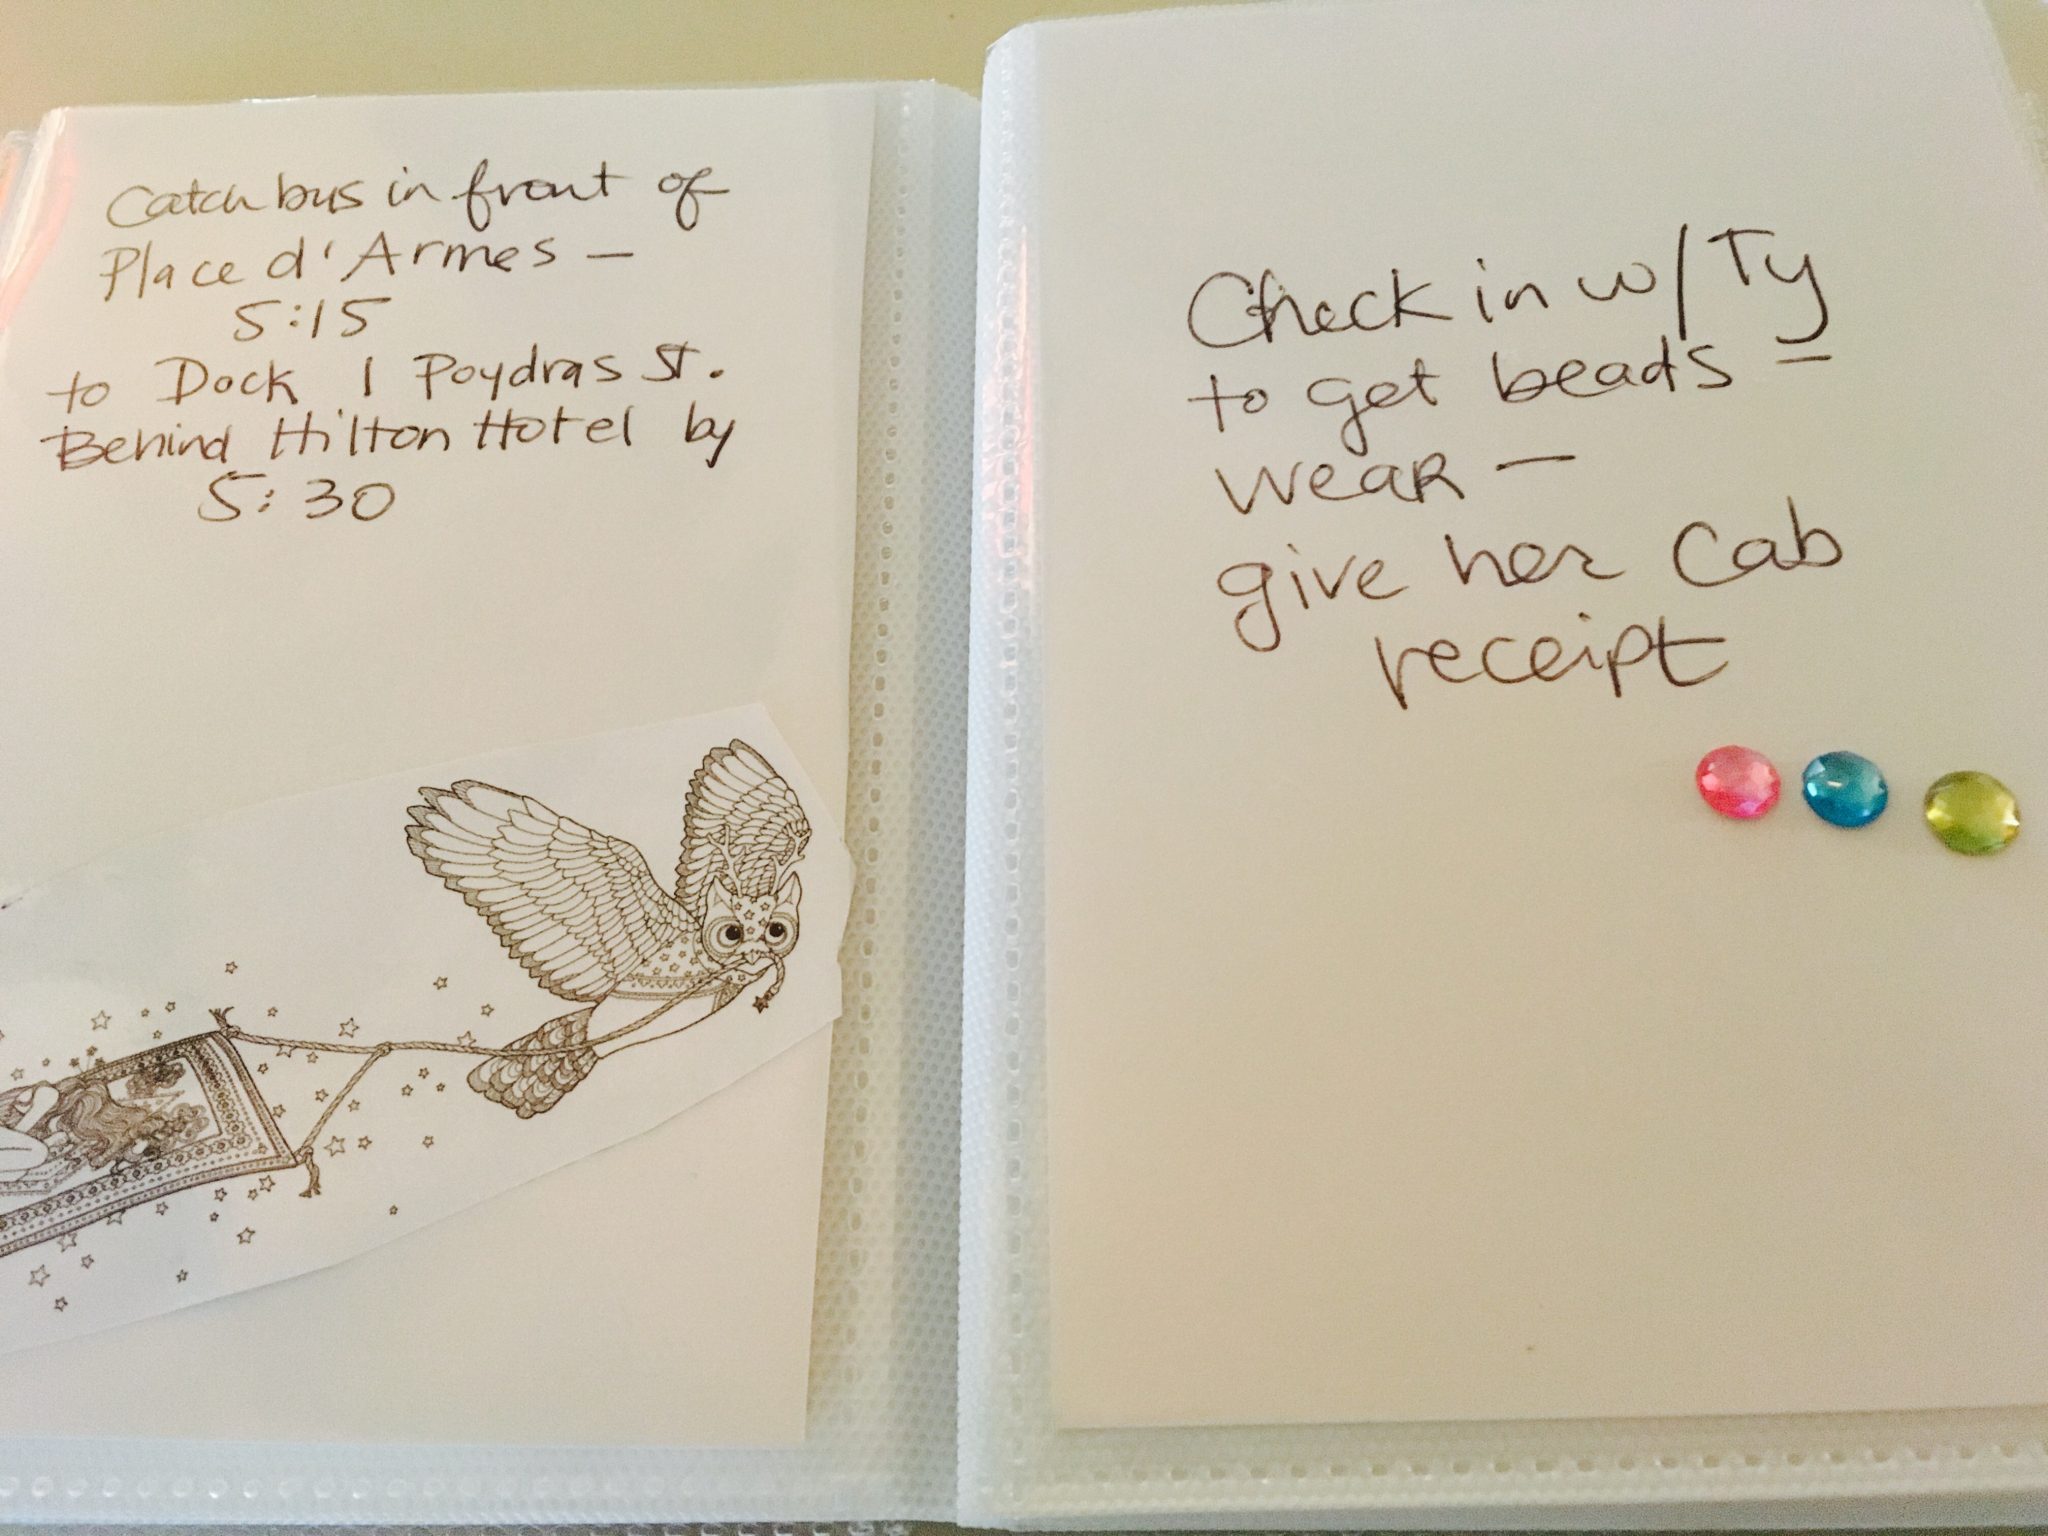 Catch bus in front of
Place d'Armes —
5:15
to Dock 1 Poydras St.
Behind Hilton Hotel by
5:30
Check in w/ Ty
to get beads =
wear —
give her cab
receipt